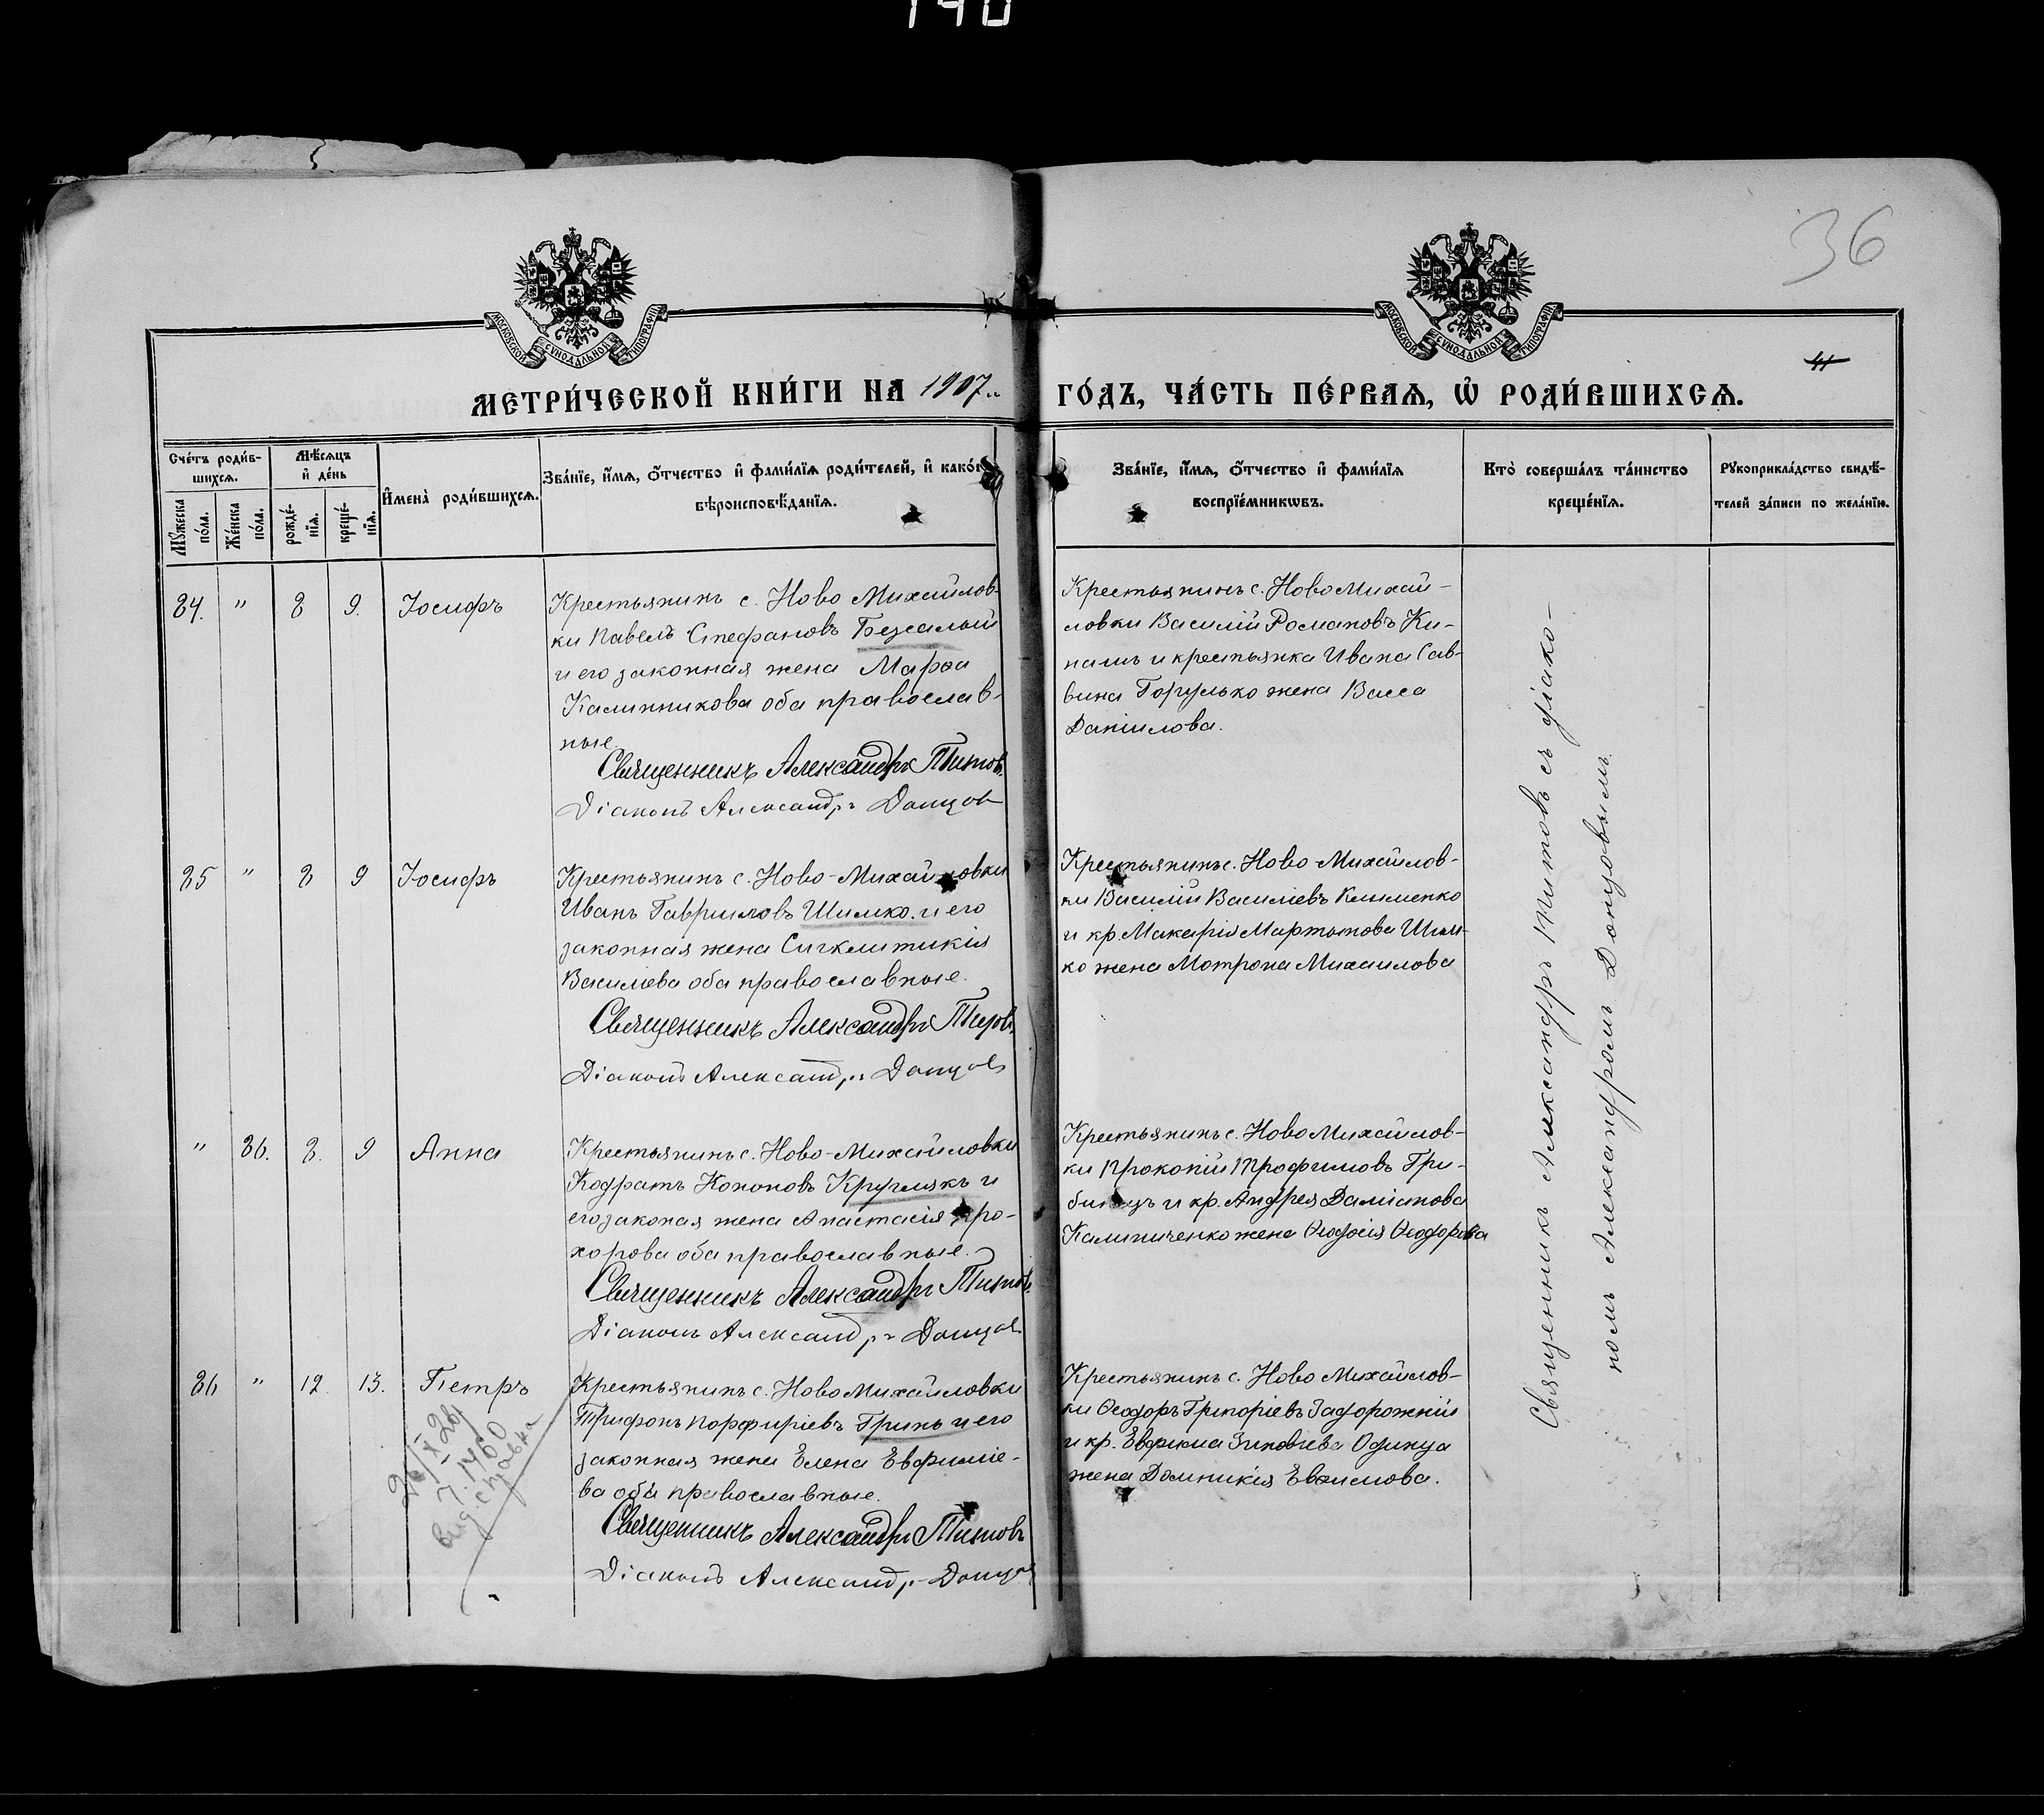 140
36
МОСКОВСКОЙ СѴНОДАЛЬНОЙ ТИПОГРАФІИ
МОСКОВСКОЙ СѴНОДАЛЬНОЙ ТИПОГРАФІИ
МЕТРИ́ЧЕСКОЙ КНИ́ГИ НА 1907
ГО́ДЪ, ЧА́СТЬ ПЕ́РВАѦ, Ѡ҆ РОДИ́ВШИХСѦ.
Сче́тъ роди́в-
шихсѧ.
Мѣ́сѧцъ
и҆ де́нь
Мꙋ́жеска
по́ла.
Же́нска
по́ла.
рожде́-
нїѧ.
креще́-
нїѧ.
И҆мена̀ роди́вшихсѧ.
Зва́нїе, и҆́мѧ, ѻ҆́тчество и҆ фами́лїѧ роди́телей, и҆ како́гѡ
вѣроисповѣ́данїѧ.
Зва́нїе, и҆́мѧ, ѻ҆́тчество и҆ фами́лїѧ
воспрїе́мникѡвъ.
Кто̀ соверша́лъ та́инство
креще́нїѧ.
Рꙋкоприкла́дство свидѣ́-
телей за́писи по жела́нїю.
84. " 8 9. Іосифъ
Крестьянинъ с. Ново Михайлов-
ки Павелъ Стефановъ Безсалый
и его законная жена Марѳа
Калинникова оба православ-
ные.
Священникъ Александръ Титовъ.
Діаконъ Александръ Донцов
Крестьянинъ с. Ново Михай-
ловки Василій Романовъ Ки-
нашъ и крестьянка Ивана Сав-
вина Горулько жена Васса
Даніилова.
85 " 8 9 Іосифъ
Крестьянинъ с. Ново-Михайловки
Иванъ Гавриловъ Шилко. и его
законная жена Сигклитикія
Василіева оба православные.
Священникъ Александръ Титовъ.
Діаконъ Александръ Донцов
Крестьянинъ с. Ново-Михайлов-
ки Василій Василіевъ Клименко
и кр. Макарія Мартынова Шил-
ко жена Мотрона Михаилова
" 86. 8. 9 Анна
Крестьянинъ с. Ново-Михайловки
Кодратъ Кононовъ Круглякъ и
его законая жена Анастасія Про-
хорова оба православные.
Священникъ Александръ Титовъ.
Діаконъ Александръ Донцов
Крестьянинъ с. Ново Михайлов-
ки Прокопій Трофимовъ Гри-
бинецъ и кр. Андрея Даміанова
Калиниченко жена Ѳеодосія Ѳеодорова
86 " 12. 13. Петръ
Крестьянинъ с. Ново Михайловки
Трифонъ Порфиріевъ Гринь и его
законная жена Елена Евфиміе-
ва оба православные.
Священникъ Александръ Титовъ
Діаконъ Александръ Донцов
Крестьянинъ с. Ново Михайлов-
ки Ѳеодоръ Григоріевъ Задорожній
и кр. Евфима Зиновіева Одинца
жена Домникія Евфимова.
1760
справка
Священникъ Александръ Титовъ съ діако-
номъ Александромъ Донцовымъ.